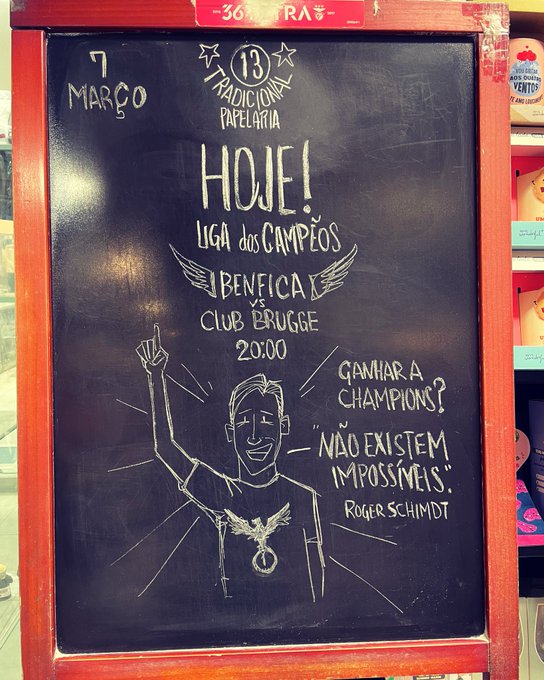 36
TRA
7
MARÇO
13
TRADICIONAL
PAPELARIA
HOJE!
LIGA dos CAMPEÕS
BENFICA
VS
CLUB BRUGGE
20:00
GANHAR A
CHAMPIONS?
"NÃO EXISTEM
IMPOSSÍVEIS".
ROGER SCHIMDT
VOU GRITAR
AOS QUATRO
VENTOS
TE AMO